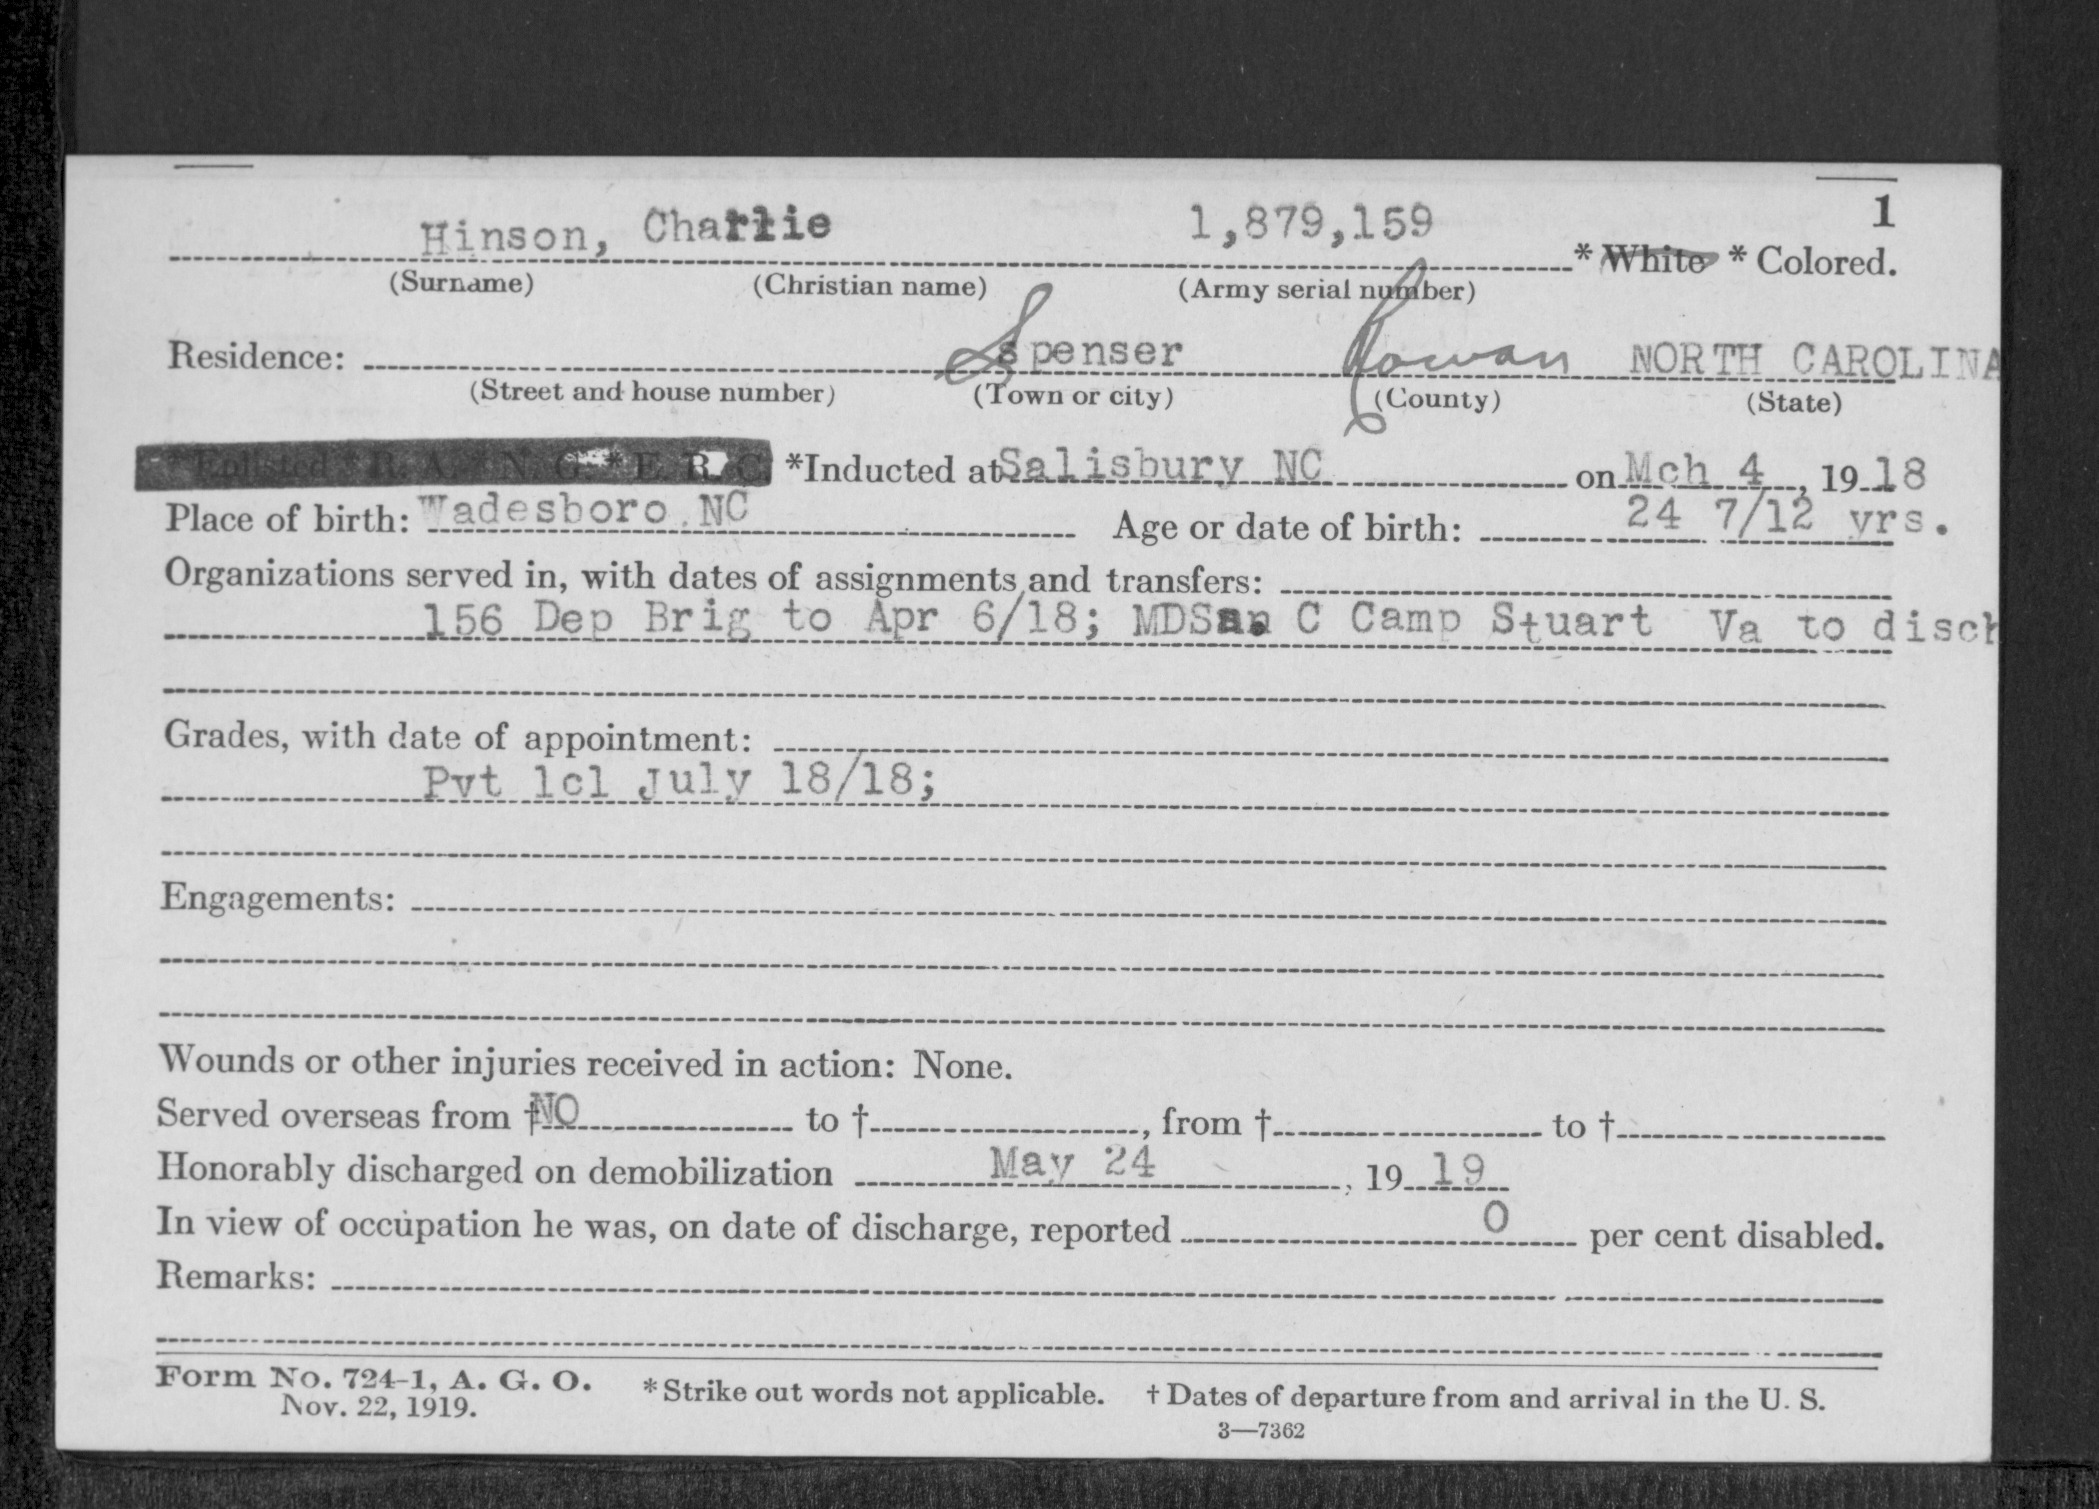 1
Hinson, Charlie 1,879,159 * White * Colored.
(Surname) (Christian name) (Army serial number)
Residence: Spenser Rowan NORTH CAROLINA
(Street and house number) (Town or city) (County) (State)
*Enlisted * R. A. * N. G. * E. R. C. *Inducted at Salisbury NC on Mch 4, 1918
Place of birth: Wadesboro NC Age or date of birth: 24 7/12 yrs.
Organizations served in, with dates of assignments and transfers:
156 Dep Brig to Apr 6/18; MDSan C Camp Stuart Va to disch
Grades, with date of appointment:
Pvt 1cl July 18/18;
Engagements:
Wounds or other injuries received in action: None.
Served overseas from † NO to †, from † to †
Honorably discharged on demobilization May 24, 1919
In view of occupation he was, on date of discharge, reported 0 per cent disabled.
Remarks:
Form No. 724-1, A. G. O. *Strike out words not applicable. † Dates of departure from and arrival in the U. S.
Nov. 22, 1919.
3—7362